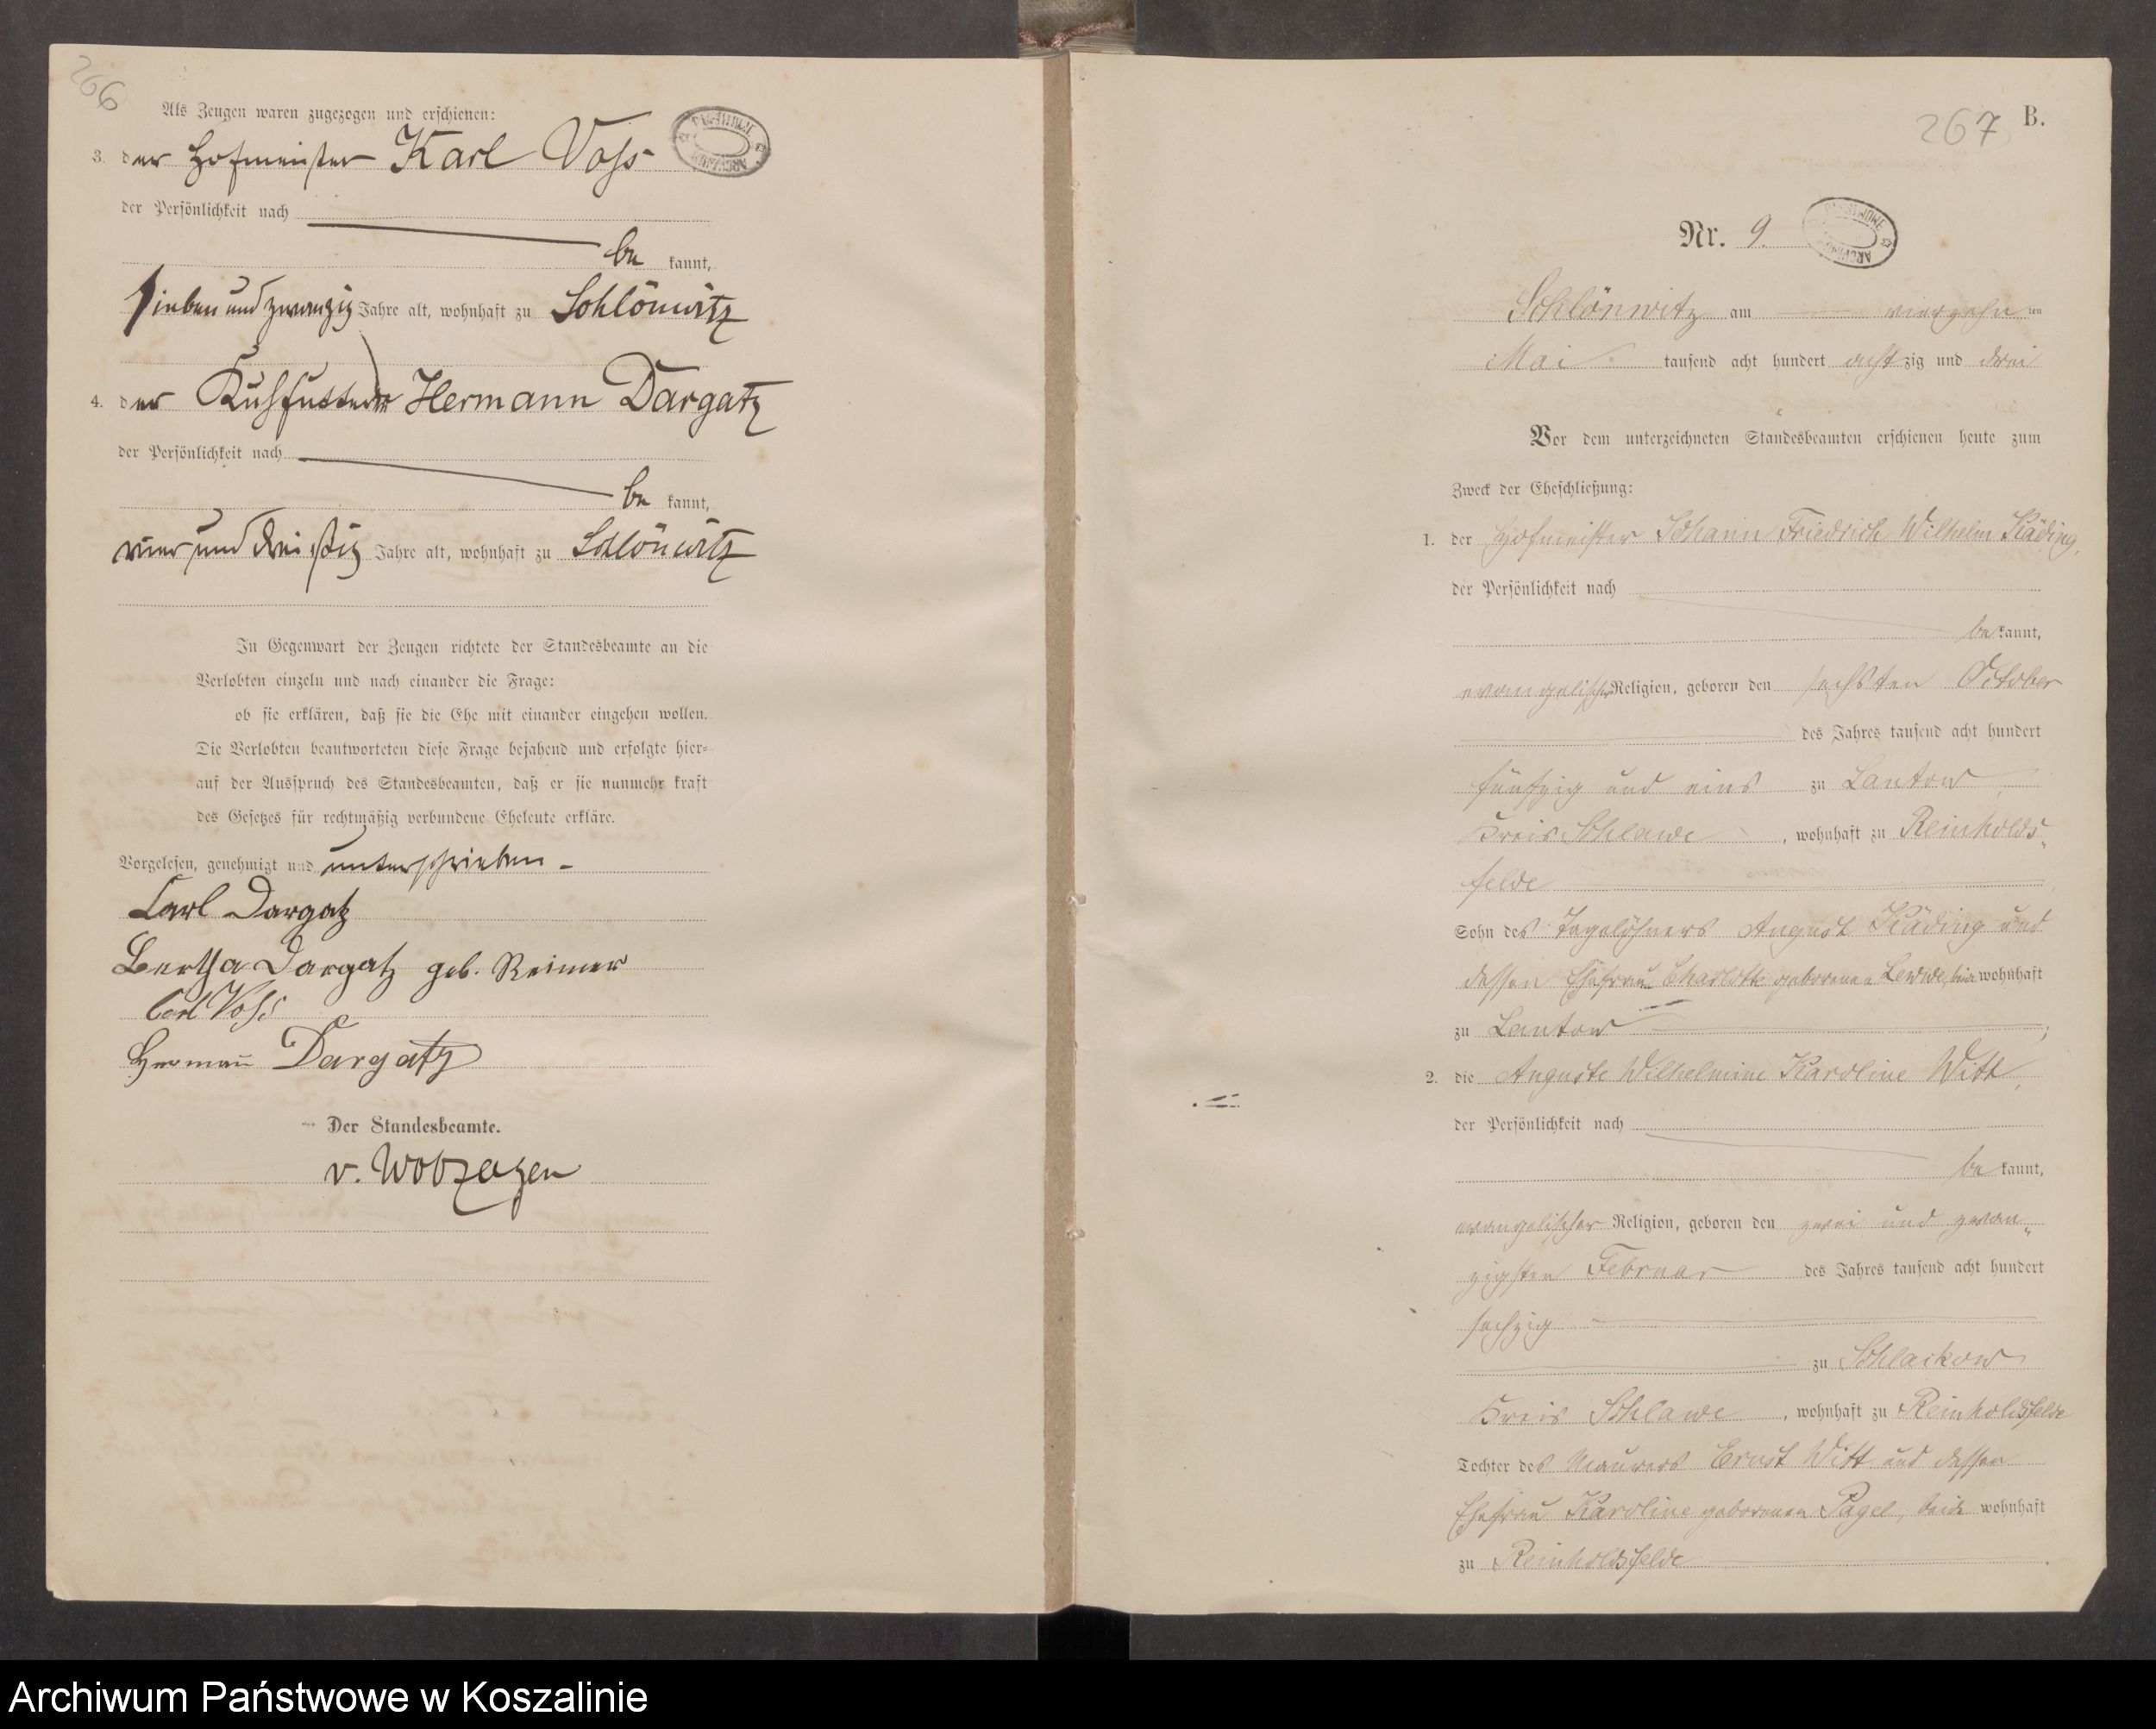 266
Als Zeugen waren zugezogen und erschienen:
3. der Hofmeister Karl Voss
der Persönlichkeit nach
be kannt,
sieben und zwanzig Jahre alt, wohnhaft zu Schlönwitz
4. der Kuhfutterer Hermann Dargatz
der Persönlichkeit nach
be kannt,
vier und dreißig Jahre alt, wohnhaft zu Schlönwitz
In Gegenwart der Zeugen richtete der Standesbeamte an die
Verlobten einzeln und nach einander die Frage:
ob sie erklären, daß sie die Ehe mit einander eingehen wollen.
Die Verlobten beantworteten diese Frage bejahend und erfolgte hier-
auf der Ausspruch des Standesbeamten, daß er sie nunmehr kraft
des Gesetzes für rechtmäßig verbundene Eheleute erkläre.
Vorgelesen, genehmigt und unterschrieben -
Carl Dargatz
Bertha Dargatz geb. Reimer
Carl Voss
Hermann Dargatz
Der Standesbeamte.
v. Woedtke
267 B.
Nr. 9.
Schlönwitz am vierzehn ten
Mai tausend acht hundert achtzig und drei
Vor dem unterzeichneten Standesbeamten erschienen heute zum
Zweck der Eheschließung:
1. der Hofmeister Johann Friedrich Wilhelm Käding,
der Persönlichkeit nach
be kannt,
evangelischer Religion, geboren den sechsten October
des Jahres tausend acht hundert
fünfzig und eins zu Lantow,
Kreis Schlawe, wohnhaft zu Reinholds-
felde
Sohn des Tagelöhners August Käding und
dessen Ehefrau Charlotte geborenen Lewwe, beide wohnhaft
zu Lantow;
2. die Auguste Wilhelmine Karoline Witt,
der Persönlichkeit nach
be kannt,
evangelischer Religion, geboren den zwei und zwan-
zigsten Februar des Jahres tausend acht hundert
sechzig
zu Schlackow
Kreis Schlawe, wohnhaft zu Reinholdsfelde
Tochter des Maurers Ernst Witt und dessen
Ehefrau Karoline geborenen Pagel, beide wohnhaft
zu Reinholdsfelde.
Archiwum Państwowe w Koszalinie